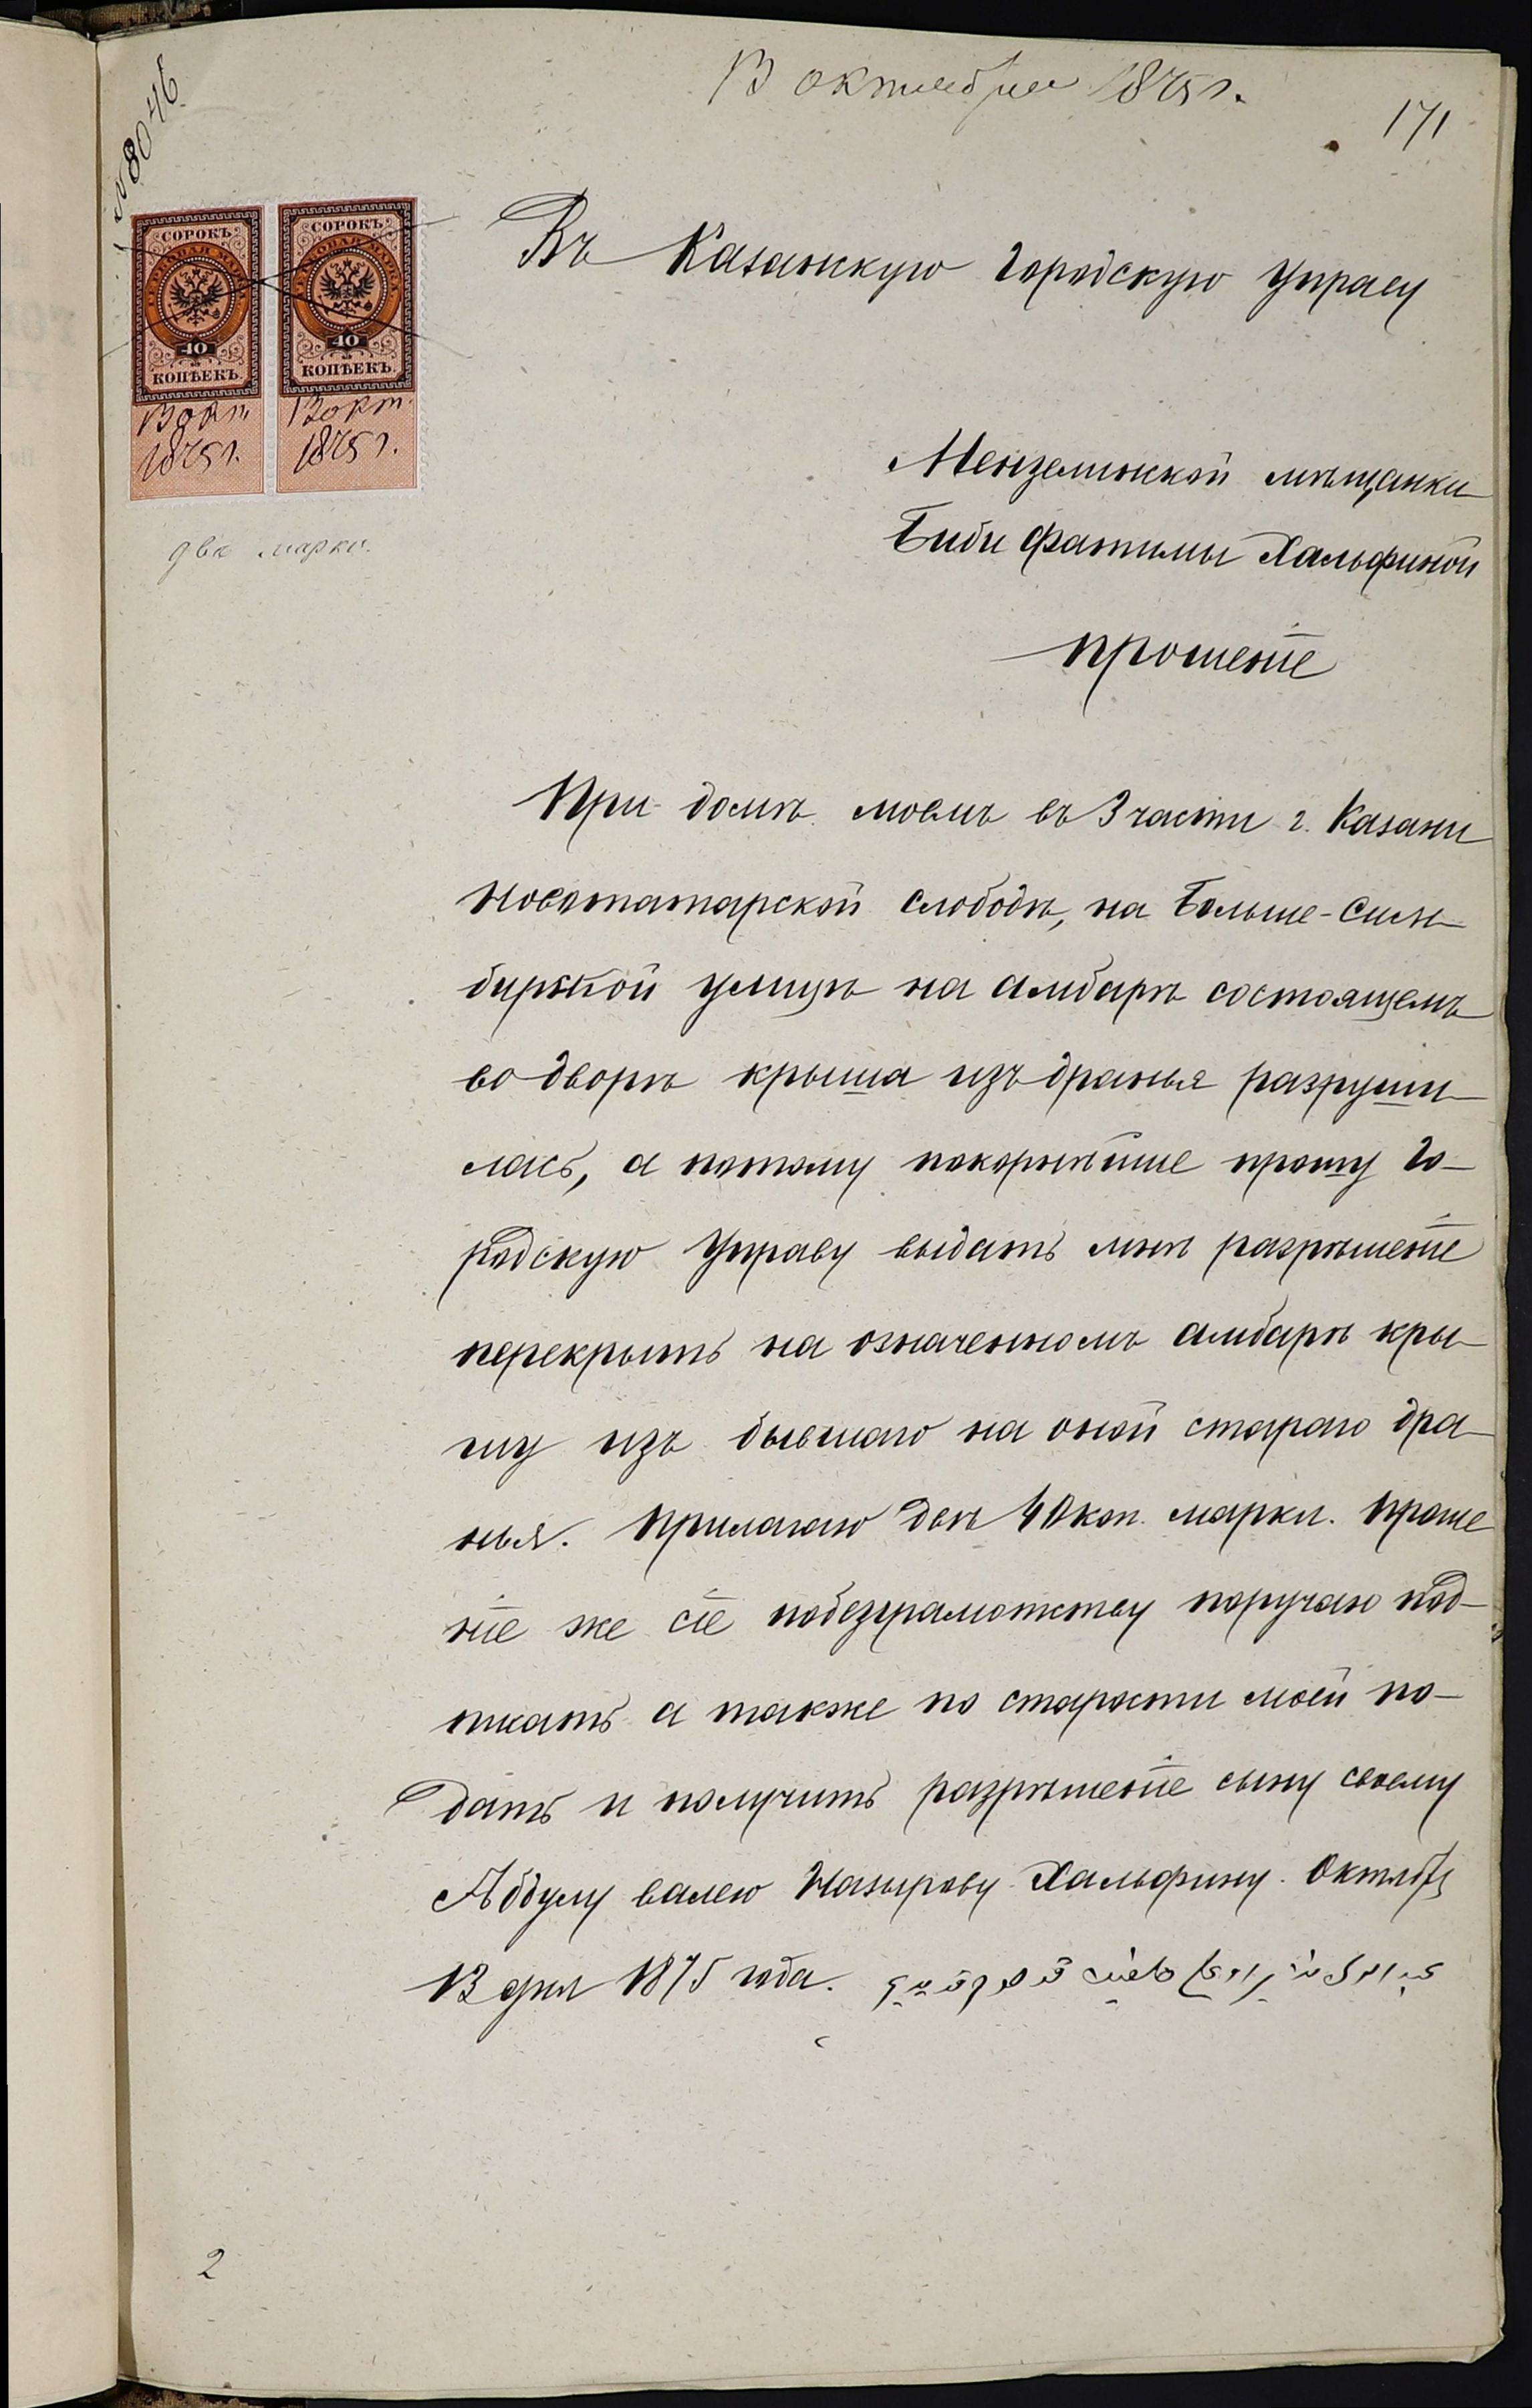 13 октября 1875 г.
171
№ 8046
СОРОКЪ
ГЕРБОВАЯ МАРКА
40
КОПѢЕКЪ.
13 окт.
1875 г.
СОРОКЪ
ГЕРБОВАЯ МАРКА
40
КОПѢЕКЪ.
13 окт.
1875 г.
двѣ марки.
Въ Казанскую Городскую Управу
Мензелинской мѣщанки
Биби Фатимы Хальфиной
прошеніе
При домѣ моемъ въ 3 части г. Казани
Новотатарской слободѣ, на Больше-Сим-
бирской улицѣ на амбарѣ состоящемъ
во дворѣ крыша изъ дранья разруши-
лась, а потому покорнѣйше прошу Го-
родскую Управу выдать мнѣ разрѣшеніе
перекрыть на означенномъ амбарѣ кры-
шу изъ бывшаго на оной стараго дра-
нья. Прилагаю двѣ 40 коп. марки. Проше
ніе же сіе побезграмотству поручаю под-
писать а также по старости моей по-
дать и получить разрѣшеніе сыну своему
Абдулу валею Назырову Хальфину. Октября
13 дня 1875 года.
2